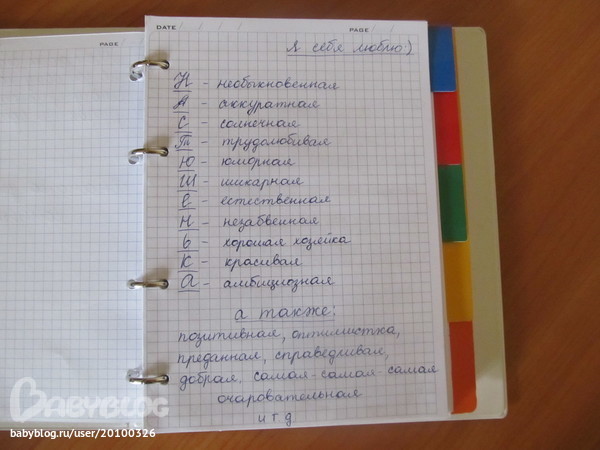 PAGE
DATE
PAGE
Я себя люблю:)
Н - необыкновенная
А - аккуратная
С - солнечная
Т - трудолюбивая
Ю - юморная
Ш - шикарная
Е - естественная
Н - незабвенная
Ь - хорошая хозяйка
К - красивая
А - амбициозная
а также:
позитивная, оптимистка,
преданная, справедливая,
добрая, самая-самая-самая
очаровательная
и т д
BABYBLOG
babyblog.ru/user/20100326